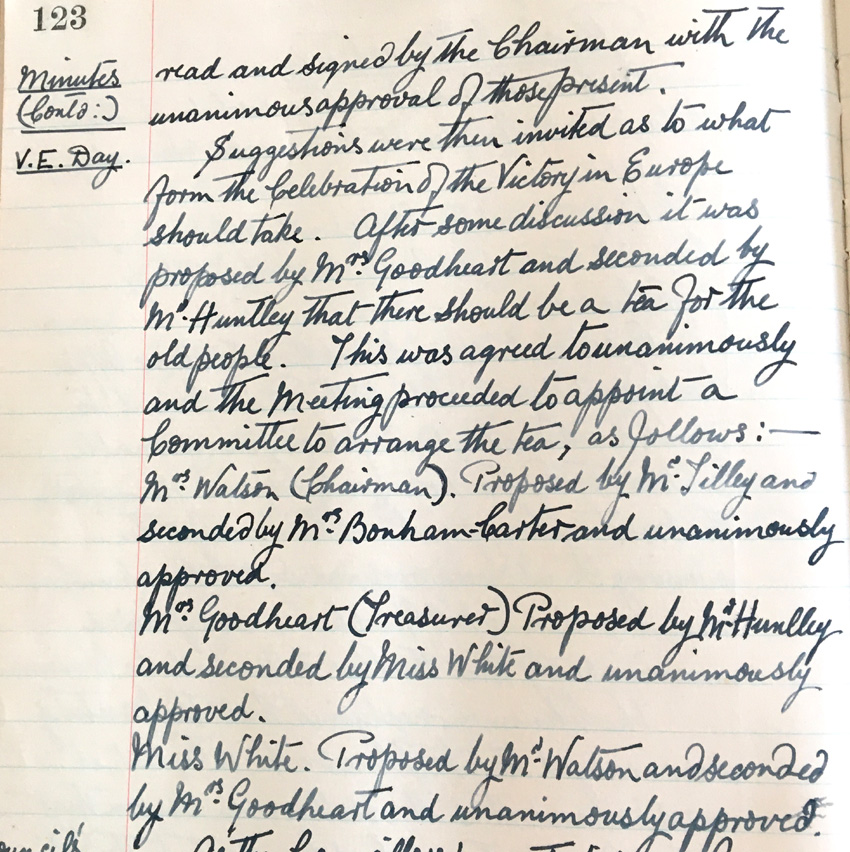 123
Minutes
(Contd:)
V.E. Day.
read and signed by the Chairman with the
unanimous approval of those present.
Suggestions were then invited as to what
form the Celebration of the Victory in Europe
should take. After some discussion it was
proposed by Mrs. Goodheart and seconded by
Mr. Huntley that there should be a tea for the
old people. This was agreed to unanimously
and the Meeting proceeded to appoint a
Committee to arrange the tea, as follows:—
Mrs. Watson (Chairman). Proposed by Mr. Tilley and
seconded by Mrs. Bonham-Carter and unanimously
approved.
Mrs. Goodheart (Treasurer) Proposed by Mr. Huntley
and seconded by Miss White and unanimously
approved.
Miss White. Proposed by Mr. Watson and seconded
by Mrs. Goodheart and unanimously approved.